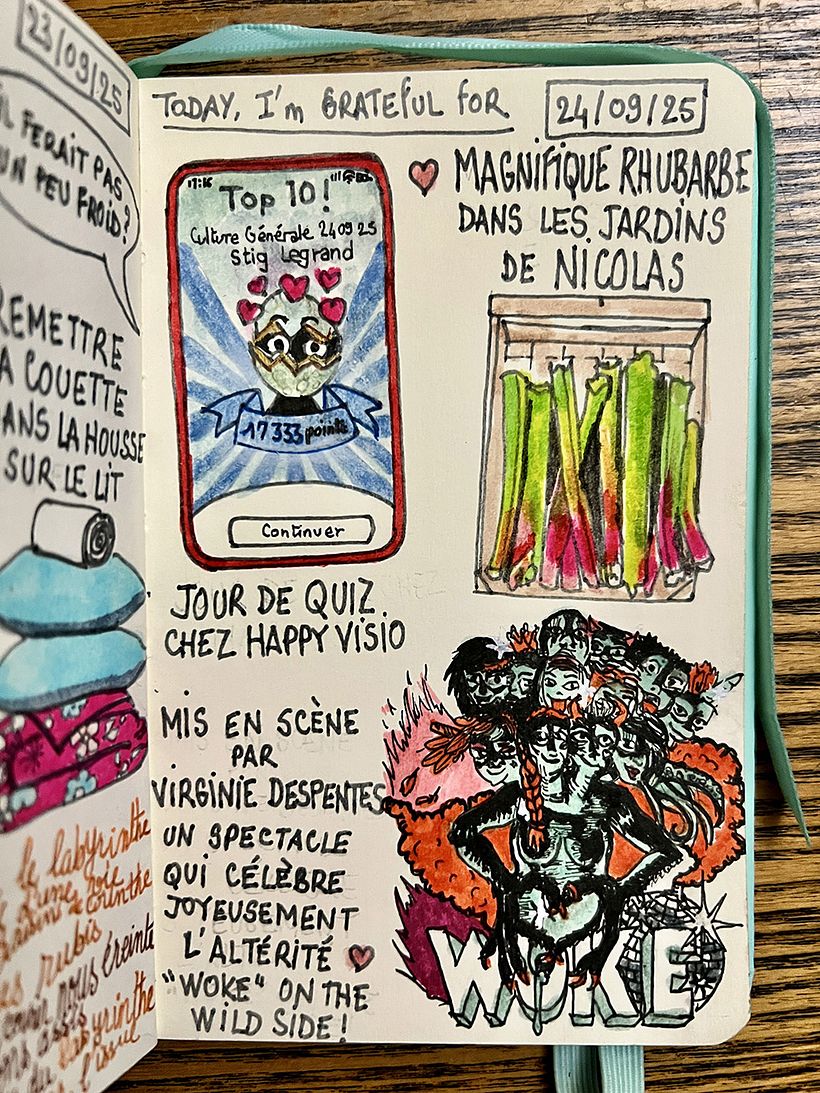 23/09/25
IL FERAIT PAS
UN PEU FROID?
REMETTRE
LA COUETTE
DANS LA HOUSSE
SUR LE LIT
le labyrinthe
rubis
nous éreinte
assis
du labyrinthe
l'issue
TODAY, I'm GRATEFUL FOR
24/09/25
17:16
Top 10!
Culture Générale 24 09 25
Stig Legrand
17 333 points
Continuer
JOUR DE QUIZ
CHEZ HAPPY VISIO
MAGNIFIQUE RHUBARBE
DANS LES JARDINS
DE NICOLAS
MIS EN SCÈNE
PAR
VIRGINIE DESPENTES
UN SPECTACLE
QUI CÉLÈBRE
JOYEUSEMENT
L'ALTÉRITÉ
"WOKE" ON THE
WILD SIDE!
WOKE